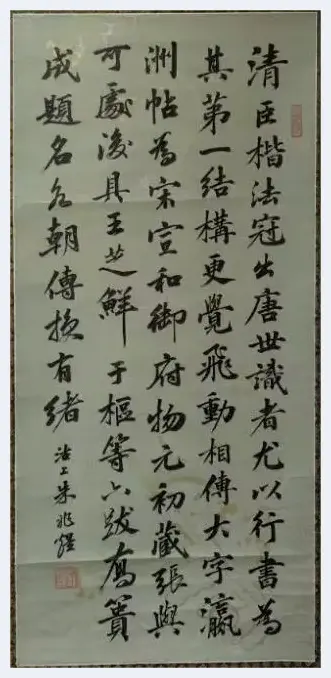 清臣楷法冠出唐世識者尤以行書為
其第一結構更覺飛動相傳大字瀛
洲帖為宋宣和御府物元初藏張與
可處後具王芝鮮于樞等六跋喬簣
成題名朝傳有緒
沽上朱兆